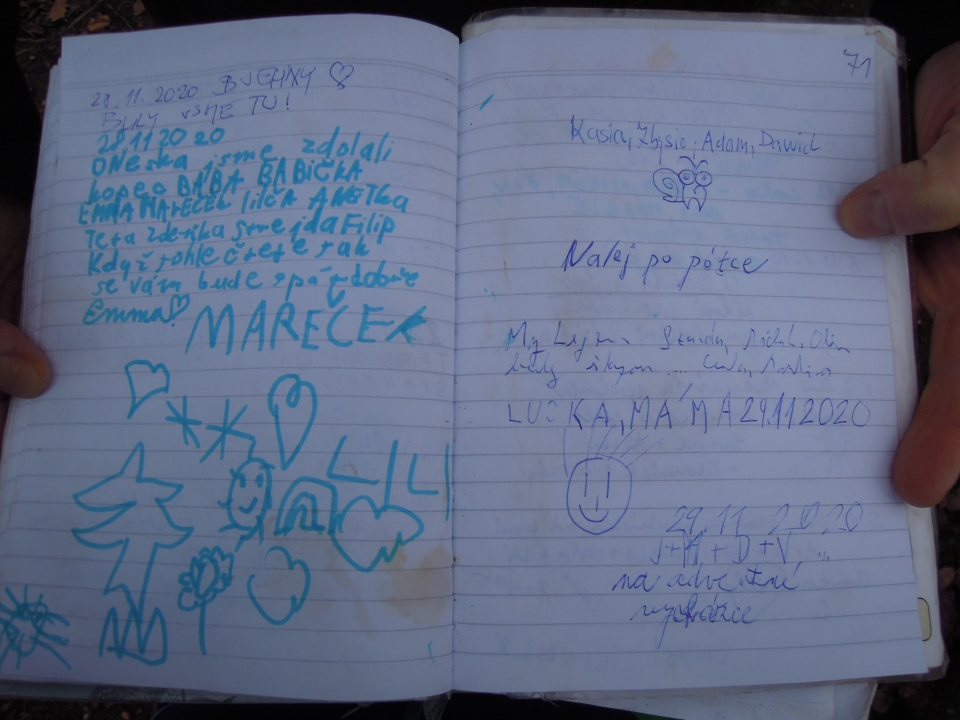 28.11.2020 BJEHNY
BYLY JSME TU!
28 11 20 20
DNeska jsme zdolali
kopec BÁBA BABIČKA
EMMA MAREČEK lilČA ANETka
Teta Zdenka
Filip
Když tohle čtete tak
se vám bude spát dobře
Emma
MAREČEK
LILI
71
Kasia, Zbysio, Adam, Dawid
Nalej po pótce
LUCKA, MÁMA 29.11 2020
29.11 2020
J+A+D+V...
na adventní
vycházce